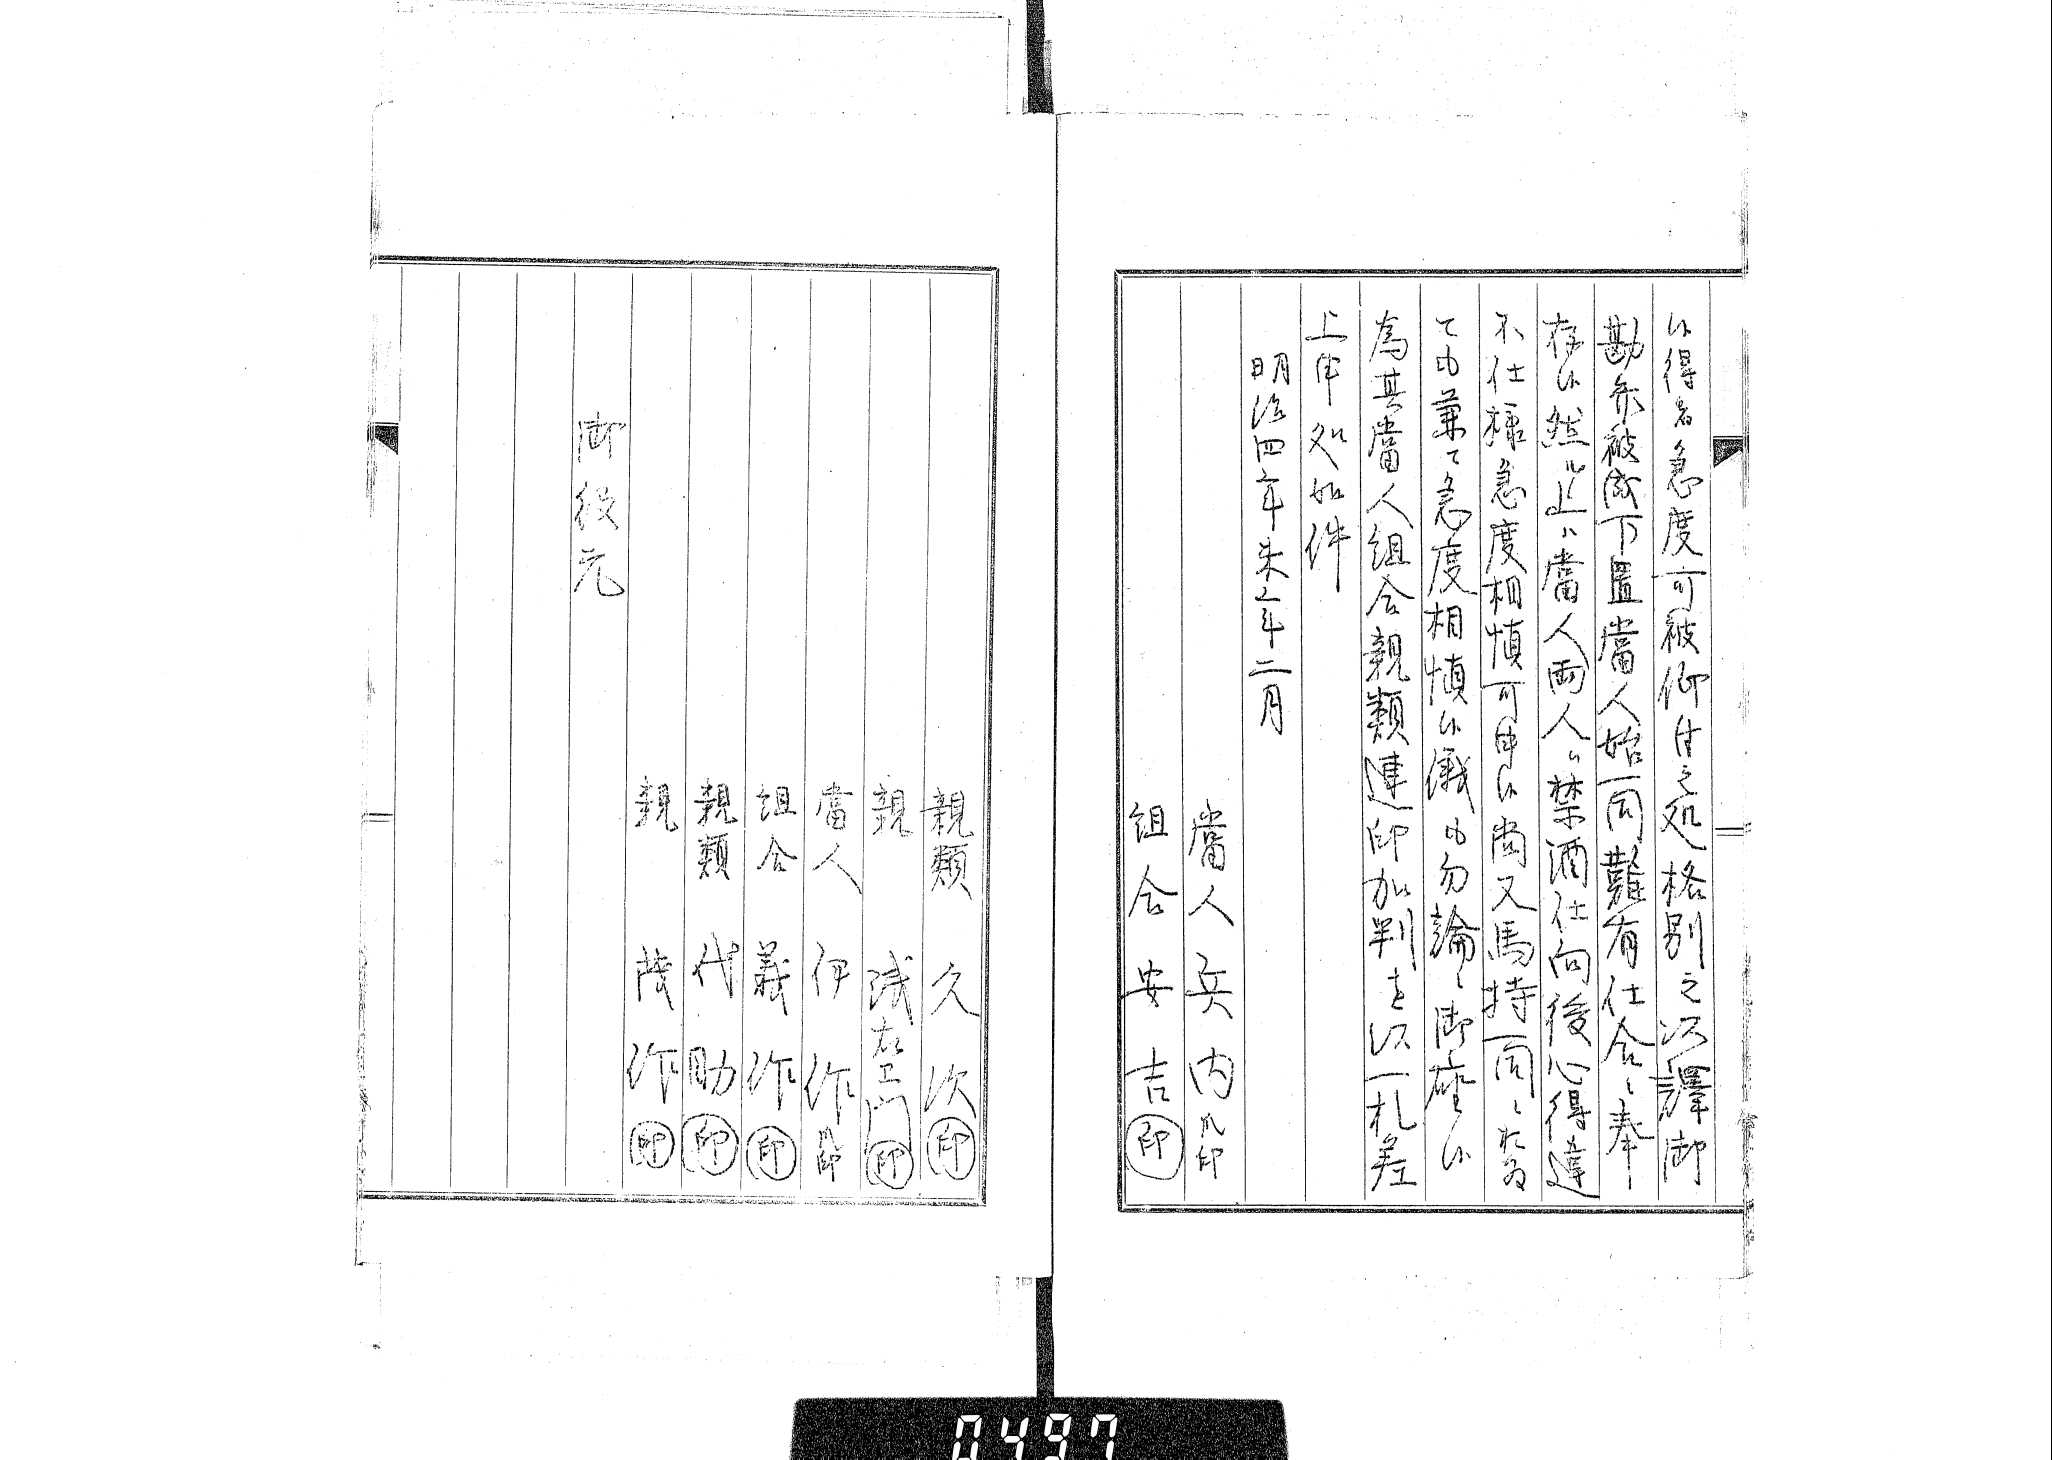 候得者急度可被仰付之処格別之以譯御
勘弁被成下置當人始一同難有仕合ニ奉
存候然ル上ハ當人両人ハ禁酒仕向後心得違
不仕様急度相慎可申候尚又馬持一同ニおゐ
ても兼て急度相慎候儀も勿論ニ御座候
為其當人組合親類連印加判を以一札差
上申処如件
明治四年未之年二月
當人 兵内 爪印
組合 安吉 印
親類 久次 印
親 浅右エ門 印
當人 伊作 爪印
組合 義作 印
親類 代助 印
親 茂作 印
御役元
0497